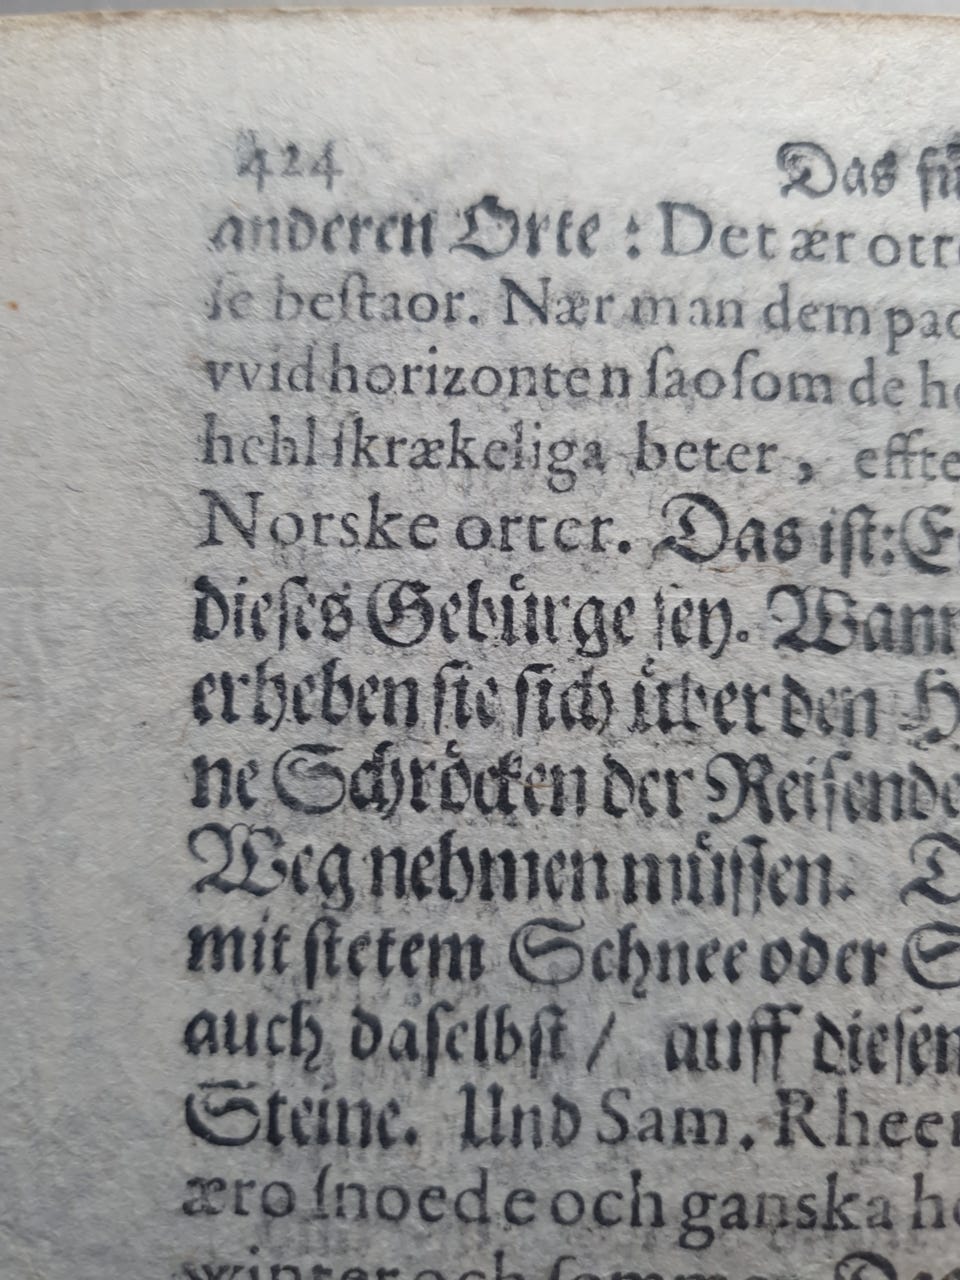 424 Das
anderen Orte : Det ær
se bestaor. Nær man dem
vvid horizonten saosom de
hehl skrækeliga beter,
Norske orter. Das ist:
dieses Gebuͤrge sey.
erheben sie sich uͤber den
ne Schroͤcken der
Weg nehmen muͤssen.
mit stetem Schnee oder
auch daselbst / auff
Steine. Und Sam.
æro snoede och ganska